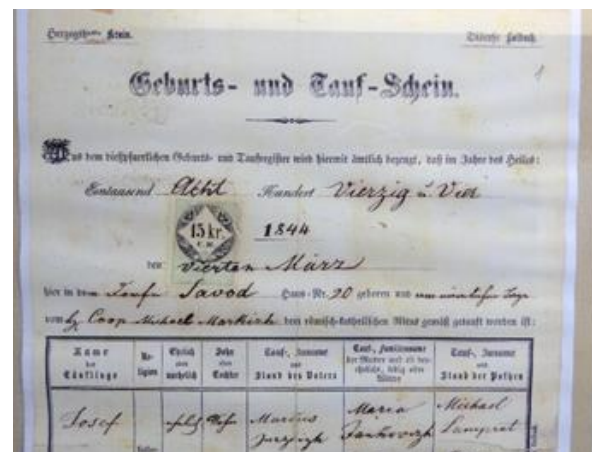 Herzogthum Krain. Diözese Laibach.
1
Geburts- und Tauf-Schein.
Aus dem diesspfarrlichen Geburts- und Taufregister wird hiermit ämtlich bezeugt, daß im Jahre des Heiles:
Eintausend Acht Hundert Vierzig u. Vier
15 kr.
C. M.
1844
den vierten März
hier in dem Dorfe Savod Haus-Nr. 20 geboren und am nämlichen Tage
vom Coop Michael Markizh dem römisch-katholischen Ritus gemäß getauft worden ist:
Name des Täuflings
Religion
Ehelich oder unehelich
Sohn oder Tochter
Tauf-, Zuname und Stand des Vaters
Tauf-, Familienname der Mutter und ob verehelicht, ledig oder Witwe
Tauf-, Zuname und Stand der Pathen
Josef ehelich Sohn Martins Maria Jankovizh Michael Lamprat